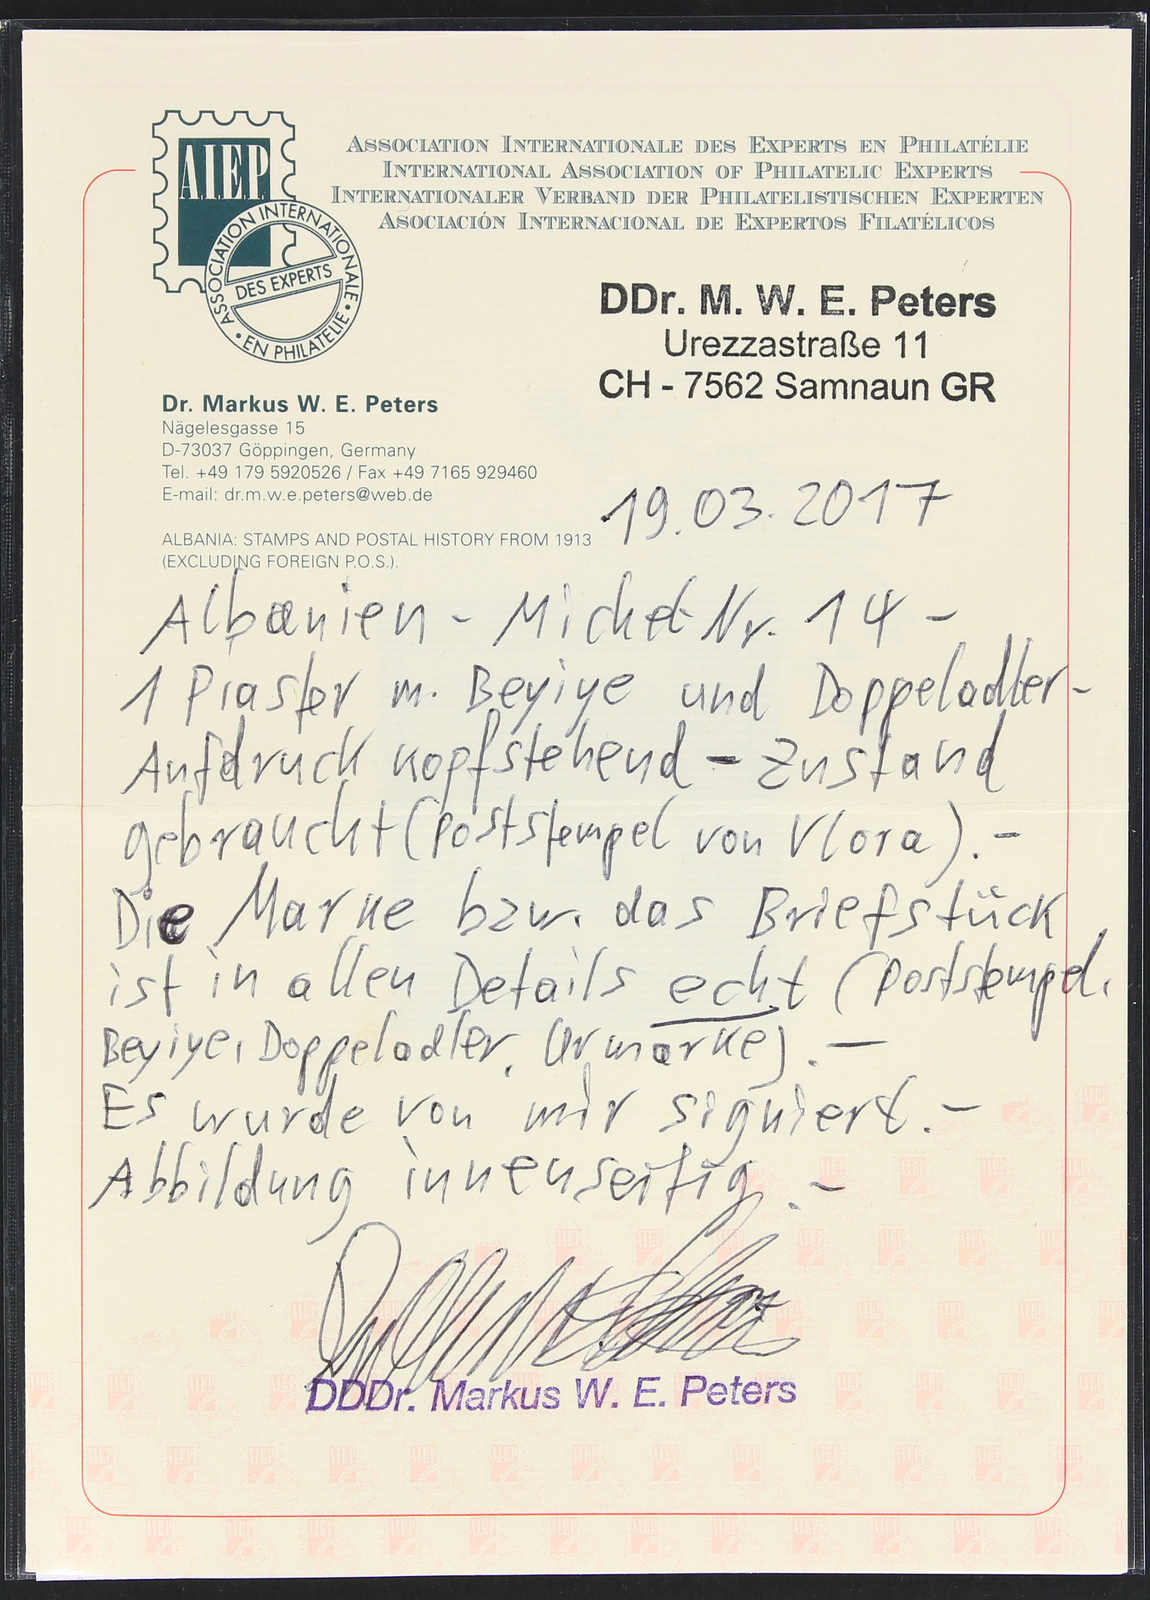 A.I.E.P.
ASSOCIATION INTERNATIONALE
DES EXPERTS
• EN PHILATÉLIE •
ASSOCIATION INTERNATIONALE DES EXPERTS EN PHILATÉLIE
INTERNATIONAL ASSOCIATION OF PHILATELIC EXPERTS
INTERNATIONALER VERBAND DER PHILATELISTISCHEN EXPERTEN
ASOCIACIÓN INTERNACIONAL DE EXPERTOS FILATÉLICOS
DDr. M. W. E. Peters
Urezzastraße 11
CH - 7562 Samnaun GR
Dr. Markus W. E. Peters
Nägelesgasse 15
D-73037 Göppingen, Germany
Tel. +49 179 5920526 / Fax +49 7165 929460
E-mail: dr.m.w.e.peters@web.de
19.03.2017
ALBANIA: STAMPS AND POSTAL HISTORY FROM 1913
(EXCLUDING FOREIGN P.O.S.).
Albanien - Michel-Nr. 14 -
1 Piaster m. Beyiye und Doppeladler-
Aufdruck kopfstehend - Zustand
gebraucht (Poststempel von Vlora). -
Die Marke bzw. das Briefstück
ist in allen Details echt (Poststempel,
Beyiye, Doppeladler, Urmarke). -
Es wurde von mir signiert. -
Abbildung innenseitig. -
DDDr. Markus W. E. Peters